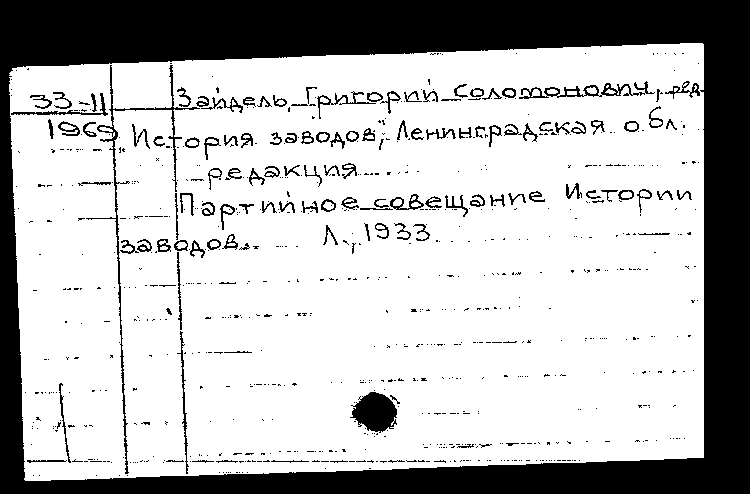 33-11 Зайдель, Григорий Соломонович, ред.
1969 "История заводов", Ленинградская обл.
редакция.
Партийное совещание Истории
заводов. Л., 1933